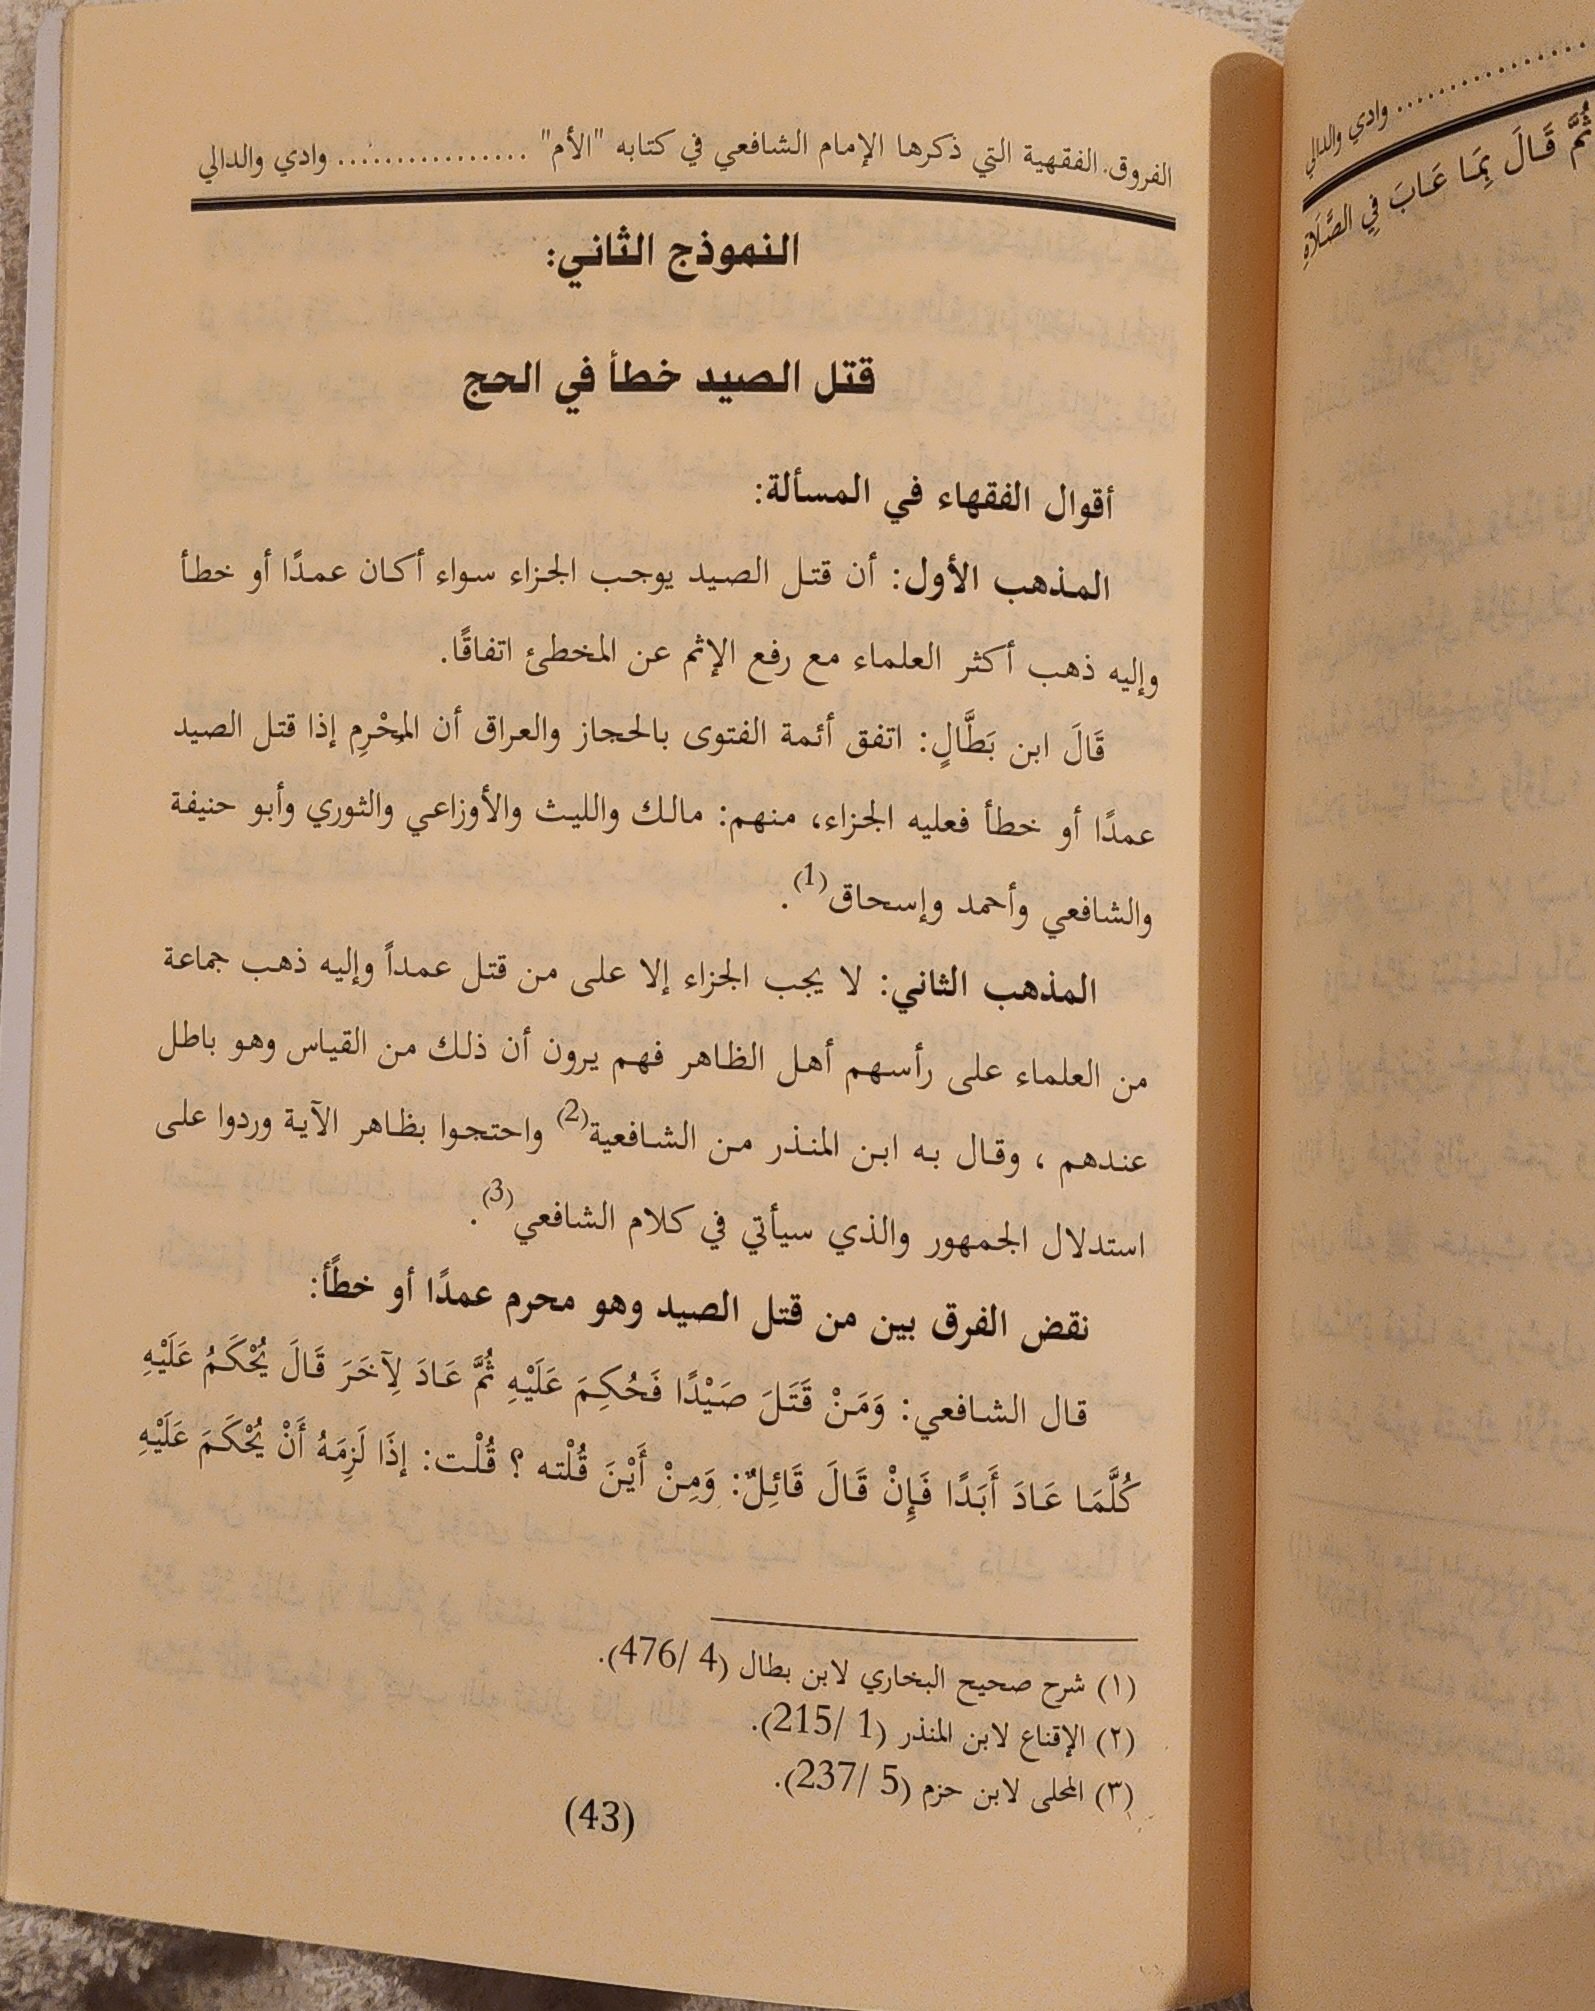 الفروق الفقهية التي ذكرها الإمام الشافعي في كتابه "الأم" ................ وادي والدالي
النموذج الثاني:
قتل الصيد خطأ في الحج
أقوال الفقهاء في المسألة:
المذهب الأول: أن قتل الصيد يوجب الجزاء سواء أكان عمدًا أو خطأ
وإليه ذهب أكثر العلماء مع رفع الإثم عن المخطئ اتفاقًا.
قَالَ ابن بَطَّالٍ: اتفق أئمة الفتوى بالحجاز والعراق أن المُحْرِم إذا قتل الصيد
عمدًا أو خطأ فعليه الجزاء، منهم: مالك والليث والأوزاعي والثوري وأبو حنيفة
والشافعي وأحمد وإسحاق(1).
المذهب الثاني: لا يجب الجزاء إلا على من قتل عمداً وإليه ذهب جماعة
من العلماء على رأسهم أهل الظاهر فهم يرون أن ذلك من القياس وهو باطل
عندهم ، وقال به ابن المنذر من الشافعية(2) واحتجوا بظاهر الآية وردوا على
استدلال الجمهور والذي سيأتي في كلام الشافعي(3).
نقض الفرق بين من قتل الصيد وهو محرم عمدًا أو خطًأ:
قال الشافعي: وَمَنْ قَتَلَ صَيْدًا فَحُكِمَ عَلَيْهِ ثُمَّ عَادَ لِآخَرَ قَالَ يُحْكَمُ عَلَيْهِ
كُلَّمَا عَادَ أَبَدًا فَإِنْ قَالَ قَائِلٌ: وَمِنْ أَيْنَ قُلْته ؟ قُلْت: إذَا لَزِمَهُ أَنْ يُحْكَمَ عَلَيْهِ
(١) شرح صحيح البخاري لابن بطال (4 /476).
(٢) الإقناع لابن المنذر (1 /215).
(٣) المحلى لابن حزم (5 /237).
(43)
................ وادي والدالي
ثُمَّ قَالَ بِمَا عَابَ فِي الصَّلَاةِ